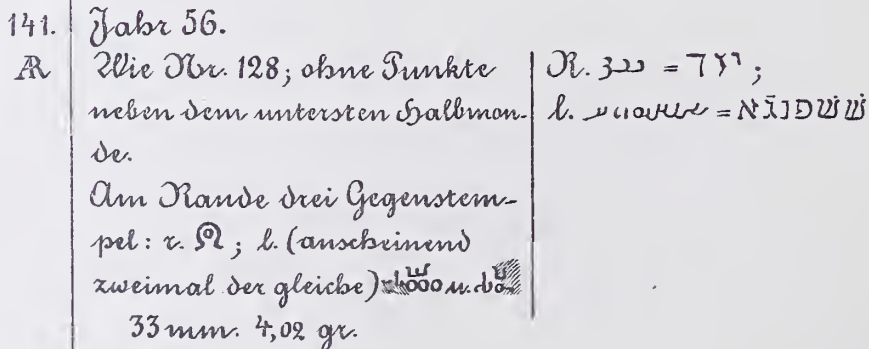 141. Jahr 56.
AR Wie Nr. 128; ohne Punkte
neben dem untersten Halbmon-
de.
Am Rande drei Gegenstem-
pel: r. ; l. (anscheinend
zweimal der gleiche) u.
33 mm. 4,02 gr.
R. =
l. =